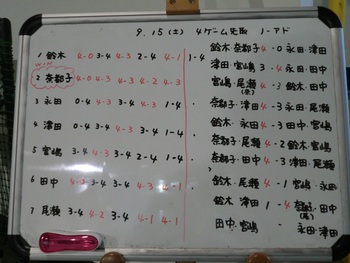 9.15(土) 4ゲーム先取 1-アド
1 鈴木 4-0 3-4 4-3 2-4 4-1 1-4
WIN
2 奈都子 4-0 4-3 4-3 4-2 4-3
3 永田 0-4 3-4 4-3 3-4 1-4
4 津田 0-4 4-3 3-4 3-4 1-4
5 宮嶋 3-4 4-3 3-4 2-4 1-4
6 田中 4-3 3-4 4-3 4-3
7 尾瀬 3-4 4-2 3-4 4-1 4-1
鈴木・奈都子 4-0 永田・津田
津田・宮嶋 3-4 田中・
宮嶋・尾瀬 4-3 鈴木・田中
奈都子・ 4-3 永田・尾瀬
鈴木・永田 4-3 津田・
奈都子・尾瀬 4-2 田中・宮嶋
奈都子・田中 4-3 津田・尾瀬
尾瀬 4-1 宮嶋・永田
鈴木・津田 1-4 奈都子・
田中・宮嶋 - 永田・津田